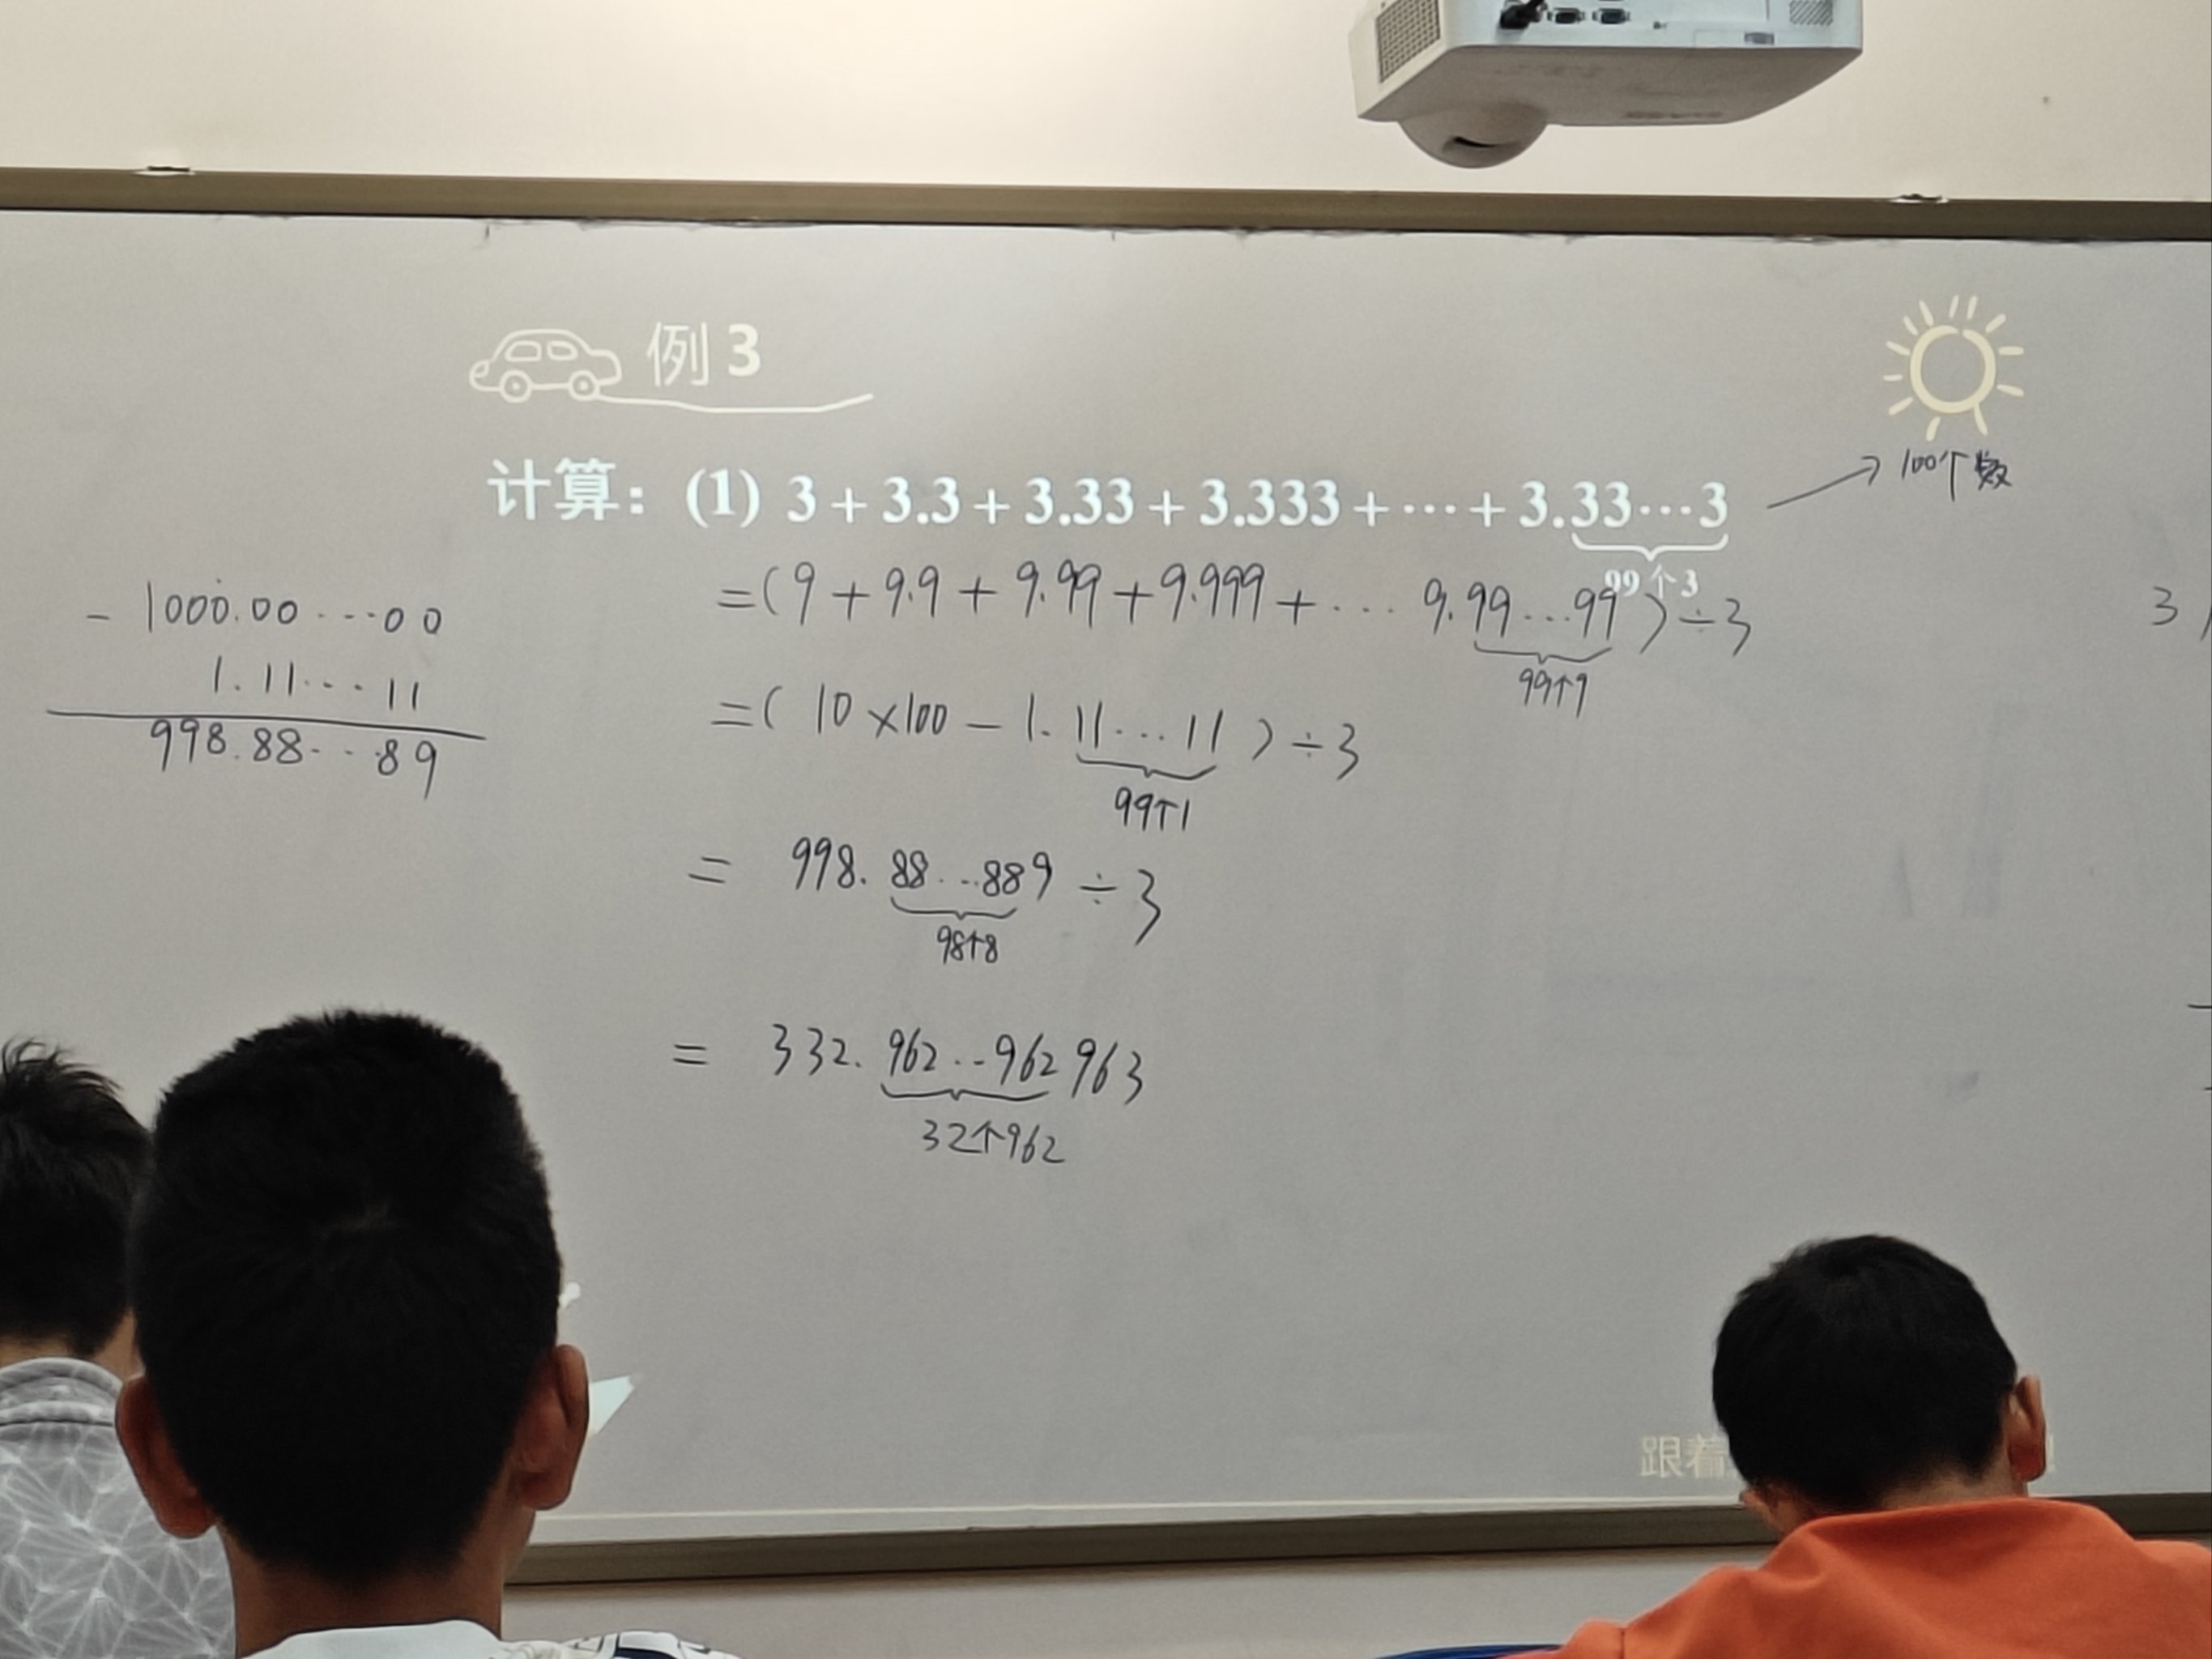 例3
计算：(1) 3 + 3.3 + 3.33 + 3.333 + ⋯ + 3.33⋯3
99个3
→ 100个数
=(9 + 9.9 + 9.99 + 9.999 + ⋯ 9.99⋯99) ÷ 3
99个9
=( 10 × 100 − 1.11⋯11 ) ÷ 3
99个1
= 998.88⋯889 ÷ 3
98个8
= 332.962⋯962963
32个962
− 1000.00⋯00
1.11⋯11
998.88⋯89
3
跟着